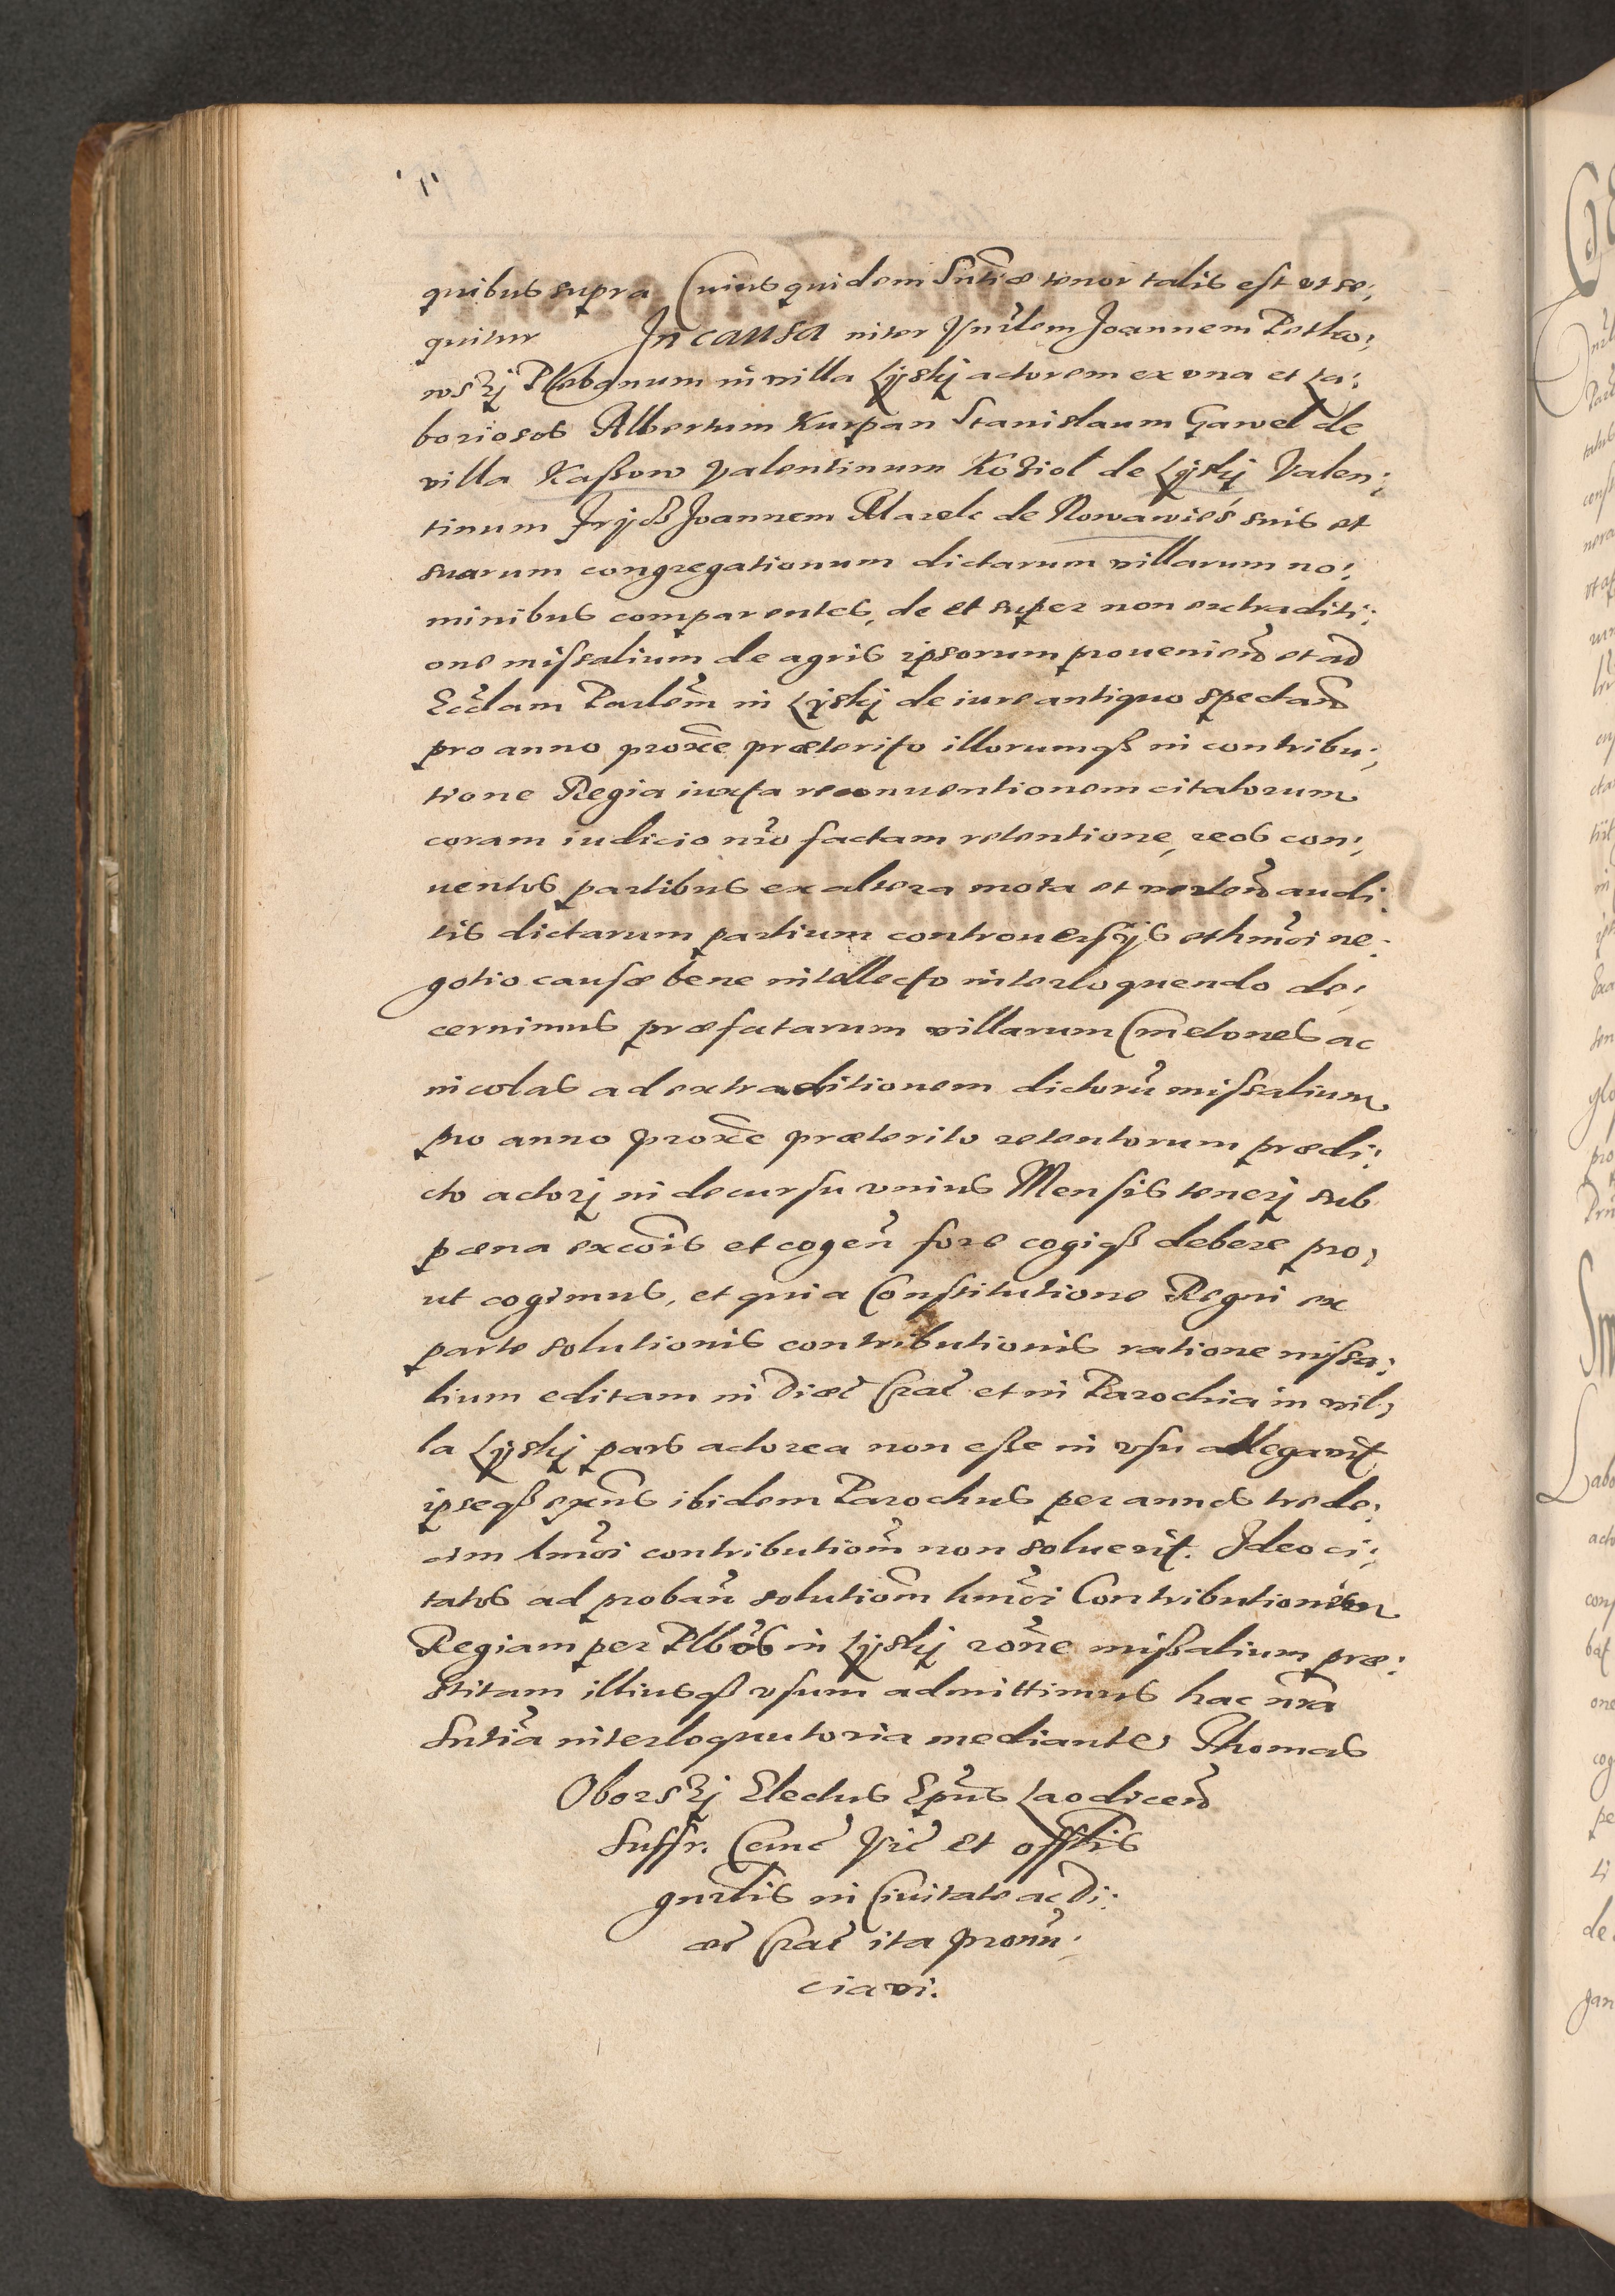 quibus supra Cuius quidem Sntiæ tenor talis est ut se;
quitur In causa inter Vnrlem Joannem Petko;
wskij Plebanum in villa Lijskij actorem ex vna et La;
boriosos Albertum Kurpan Stanislaum Gaweł de
villa Kaßow Valentinum Kozioł de Lijskij Valen;
tinum Joannem Marek de Nowawieś suis et
suarum congregationum dictarum villarum no;
minibus comparentes, de et super non extraditi;
one missalium de agris ipsorum prouenien et ad
Eccłam Parlem in Lijskij de iure antiquo spectan
pro anno proxe præterito illorumqß in contribu;
tione Regia iuxta reconuentionem citatorum
coram iudicio nro factam retentione, reos con;
uentos partibus ex altera mota et verten audi;
tis dictarum partium controuersijs et hmoi ne;
gotio causæ bene intellecto interloquendo de;
cernimus præfatarum villarum Cmetones ac
incolas ad extraditionem dictoru missalium
pro anno proxe præterito retentorum prædi;
cto actorj in decursu vnius Mensis tenerj sub
pœna excois et cogen fore cogiqß debere pro;
ut cogimus, et quia Constitutione Regni ex
parte solutionis contributionis ratione missa;
lium editam in Diœc Crac et in Parochia in vil;
la Lijskij pars actorea non esse in vsu allegavit
ipseqß exns ibidem Parochus per annos trede;
cim hmoi contributiom non soluerit. Ideo ci;
tatos ad proban solutiom hmoi Contributionem
Regiam per Plbos in Lijskij rone mißalium præ;
stitam illiusqß vsum admittimus hac nra
Sntia interloquutoria mediante, Thomas
Oborskij Electus Epus Laodicen
Suffr. Canc Vic et offlis
gnrlis in Ciuitate ac Di;
œc Crac ita pronun;
ciavi.